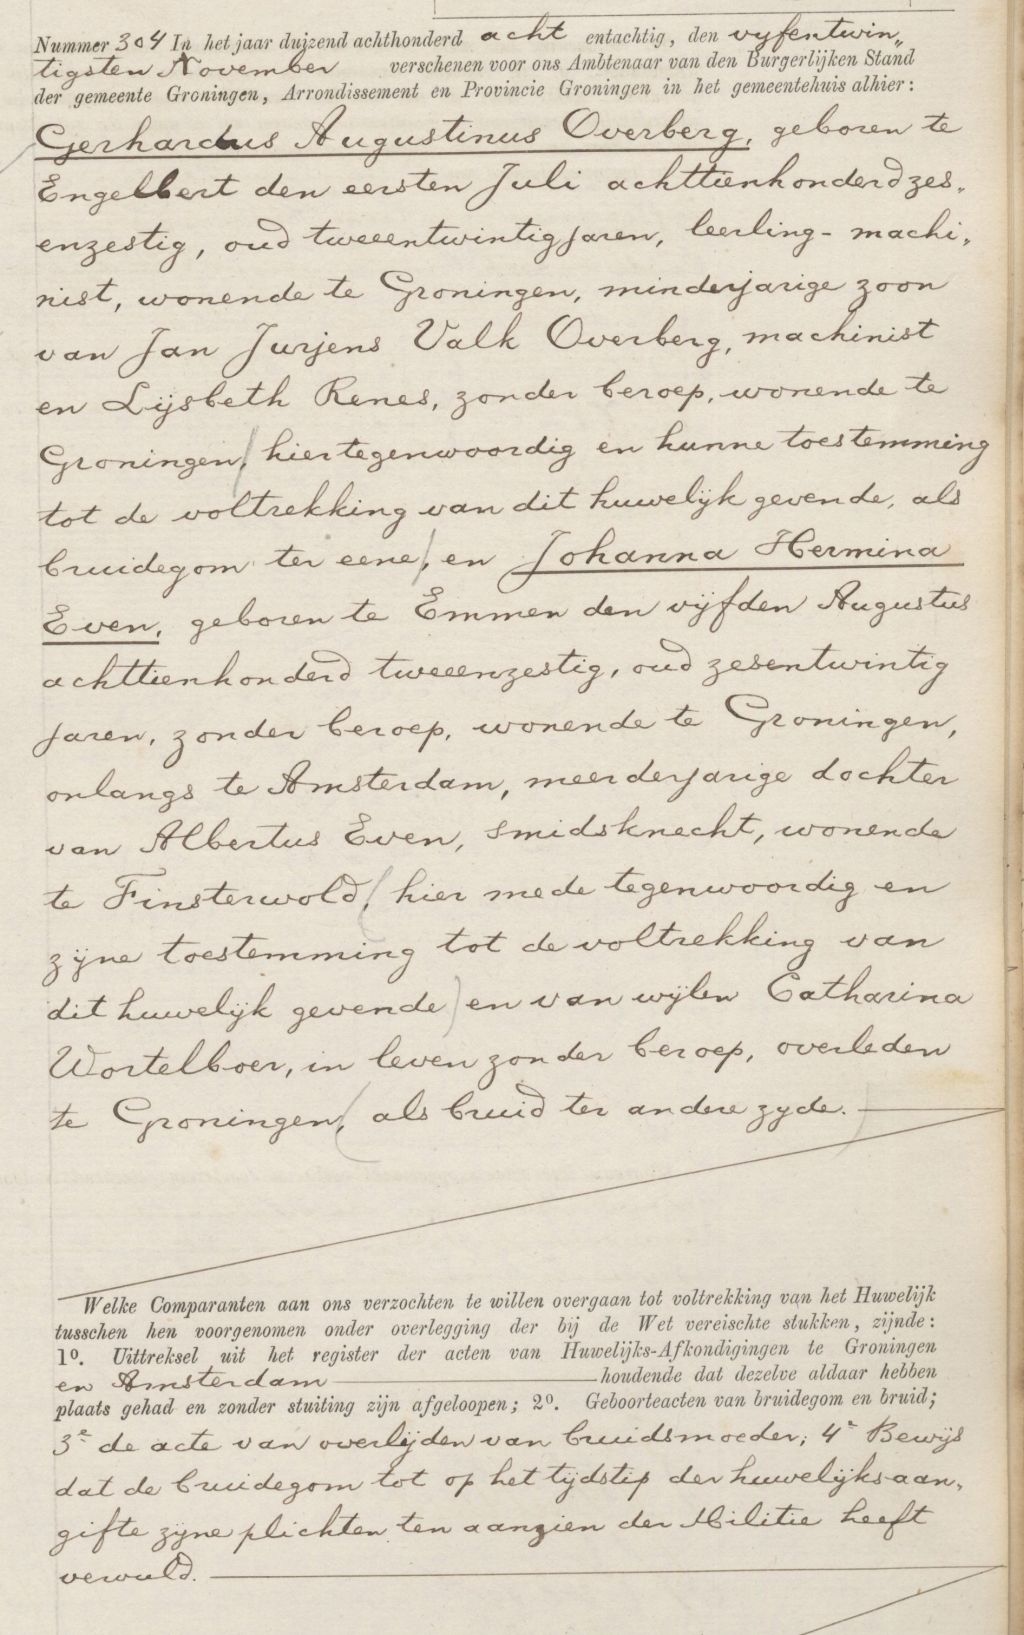 Nummer 304 In het jaar duizend achthonderd acht entachtig, den vyfentwin„
tigsten November verschenen voor ons Ambtenaar van den Burgerlijken Stand
der gemeente Groningen, Arrondissement en Provincie Groningen in het gemeentehuis alhier:
Gerhardus Augustinus Overberg, geboren te
Engelbert den eersten Juli achttienhonderd zes„
enzestig, oud tweeentwintig jaren, leerling-machi„
nist, wonende te Groningen, minderjarige zoon
van Jan Jurjens Valk Overberg, machinist
en Lijsbeth Renes, zonder beroep, wonende te
Groningen, hiertegenwoordig en hunne toestemming
tot de voltrekking van dit huwelijk gevende, als
bruidegom ter eene, en Johanna Hermina
Even, geboren te Emmen den vijfden Augustus
achttienhonderd tweeenzestig, oud zesentwintig
jaren, zonder beroep, wonende te Groningen,
onlangs te Amsterdam, meerderjarige dochter
van Albertus Even, smidsknecht, wonende
te Finsterwold, (hier mede tegenwoordig en
zijne toestemming tot de voltrekking van
dit huwelijk gevende) en van wijlen Catharina
Wortelboer, in leven zonder beroep, overleden
te Groningen, als bruid ter andere zyde.
Welke Comparanten aan ons verzochten te willen overgaan tot voltrekking van het Huwelijk
tusschen hen voorgenomen onder overlegging der bij de Wet vereischte stukken, zijnde:
1º. Uittreksel uit het register der acten van Huwelijks-Afkondigingen te Groningen
en Amsterdam houdende dat dezelve aldaar hebben
plaats gehad en zonder stuiting zijn afgeloopen; 2º. Geboorteacten van bruidegom en bruid;
3e de acte van overlijden van bruidsmoeder; 4e Bewijs
dat de bruidegom tot op het tijdstip der huwelijksaan„
gifte zijne plichten ten aanzien der Militie heeft
vervuld.